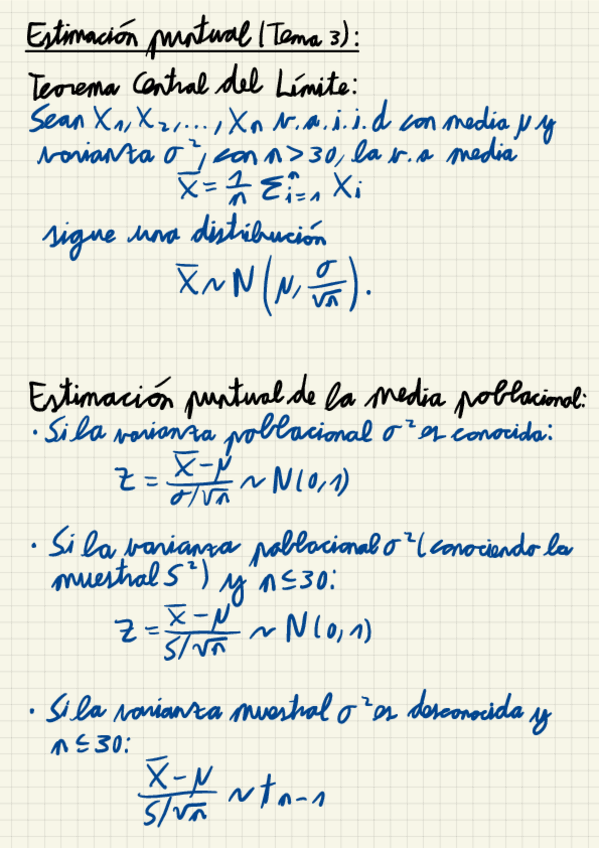 Estimación puntual (Tema 3):
Teorema Central del Límite:
Sean X₁, X₂, ..., Xn v.a.i.i.d con media μ y
varianza σ², con n > 30, la v.a media
X̅ = 1/n Σⁿᵢ₌₁ Xi
sigue una distribución
X̅ ~ N(μ, σ/√n).
Estimación puntual de la media poblacional:
· Si la varianza poblacional σ² es conocida:
Z = X̅ - μ / σ/√n ~ N(0,1)
· Si la varianza poblacional σ² (conociendo la
muestral S²) y n ≤ 30:
Z = X̅ - μ / S/√n ~ N(0,1)
· Si la varianza muestral σ² es desconocida y
n ≤ 30:
X̅ - μ / S/√n ~ t n-1